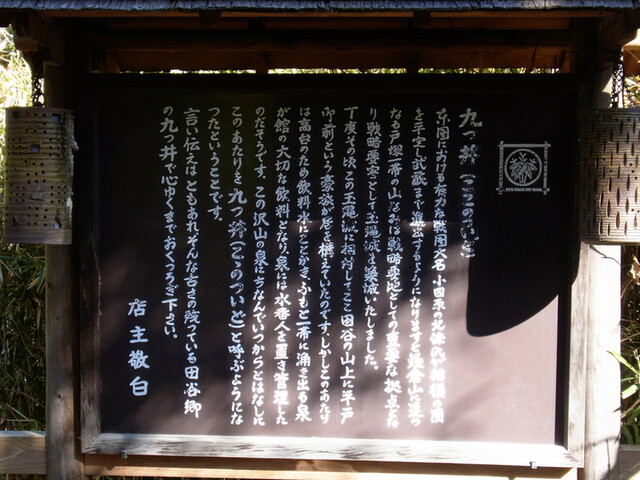 九つ井（ここのつゐど）
東国における有力な戦国大名 小田原の北條氏が相模の国
を平定し武蔵まで進出するようになりますと鎌倉山に連
なる戸塚一帯の山なみは戦略要地としての重要な拠点とな
り戦略要害として玉縄城を築城いたしました。
丁度その頃、この玉縄城に相対してここ田谷の山上に平戸
御前という豪族が居を構えていたのです。しかしこのあたり
は高台のため飲料水にことかき、ふもと一帯に涌き出る泉
が館の大切な飲料となり泉には水番人を置き管理した
のだそうです。この沢山の泉にちなんでいつからとはなしに
このあたりを九つ井（ここのついど）と呼ぶようにな
ったということです。
言い伝えはともあれそんな古さの残っている田谷郷
の九つ井で心ゆくまでおくつろぎ下さい。
店主敬白